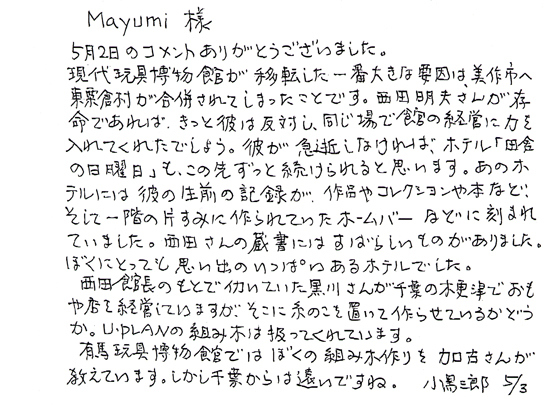 Mayumi 様
5月2日のコメントありがとうございました。
現代玩具博物館が移転した一番大きな要因は、美作市へ
東粟倉村が合併されてしまったことです。西田明夫さんが存
命であれば、きっと彼は反対し、同じ場で館の経営に力を
入れてくれたでしょう。彼が急逝しなければ、ホテル「田舎
の日曜日」も、この先ずっと続けられると思います。あのホ
テルには彼の生前の記録が、作品やコレクションや本など、
そして一階の片すみに作られていたホームバーなどに刻まれ
ていました。西田さんの蔵書にはすばらしいものがありました。
ぼくにとっても思い出のいっぱいあるホテルでした。
西田館長のもとで仂いていた黒川さんが千葉の木更津でおも
や店を経営していますが、そこに糸のこを置いて作らせているかどう
か。U-PLANの組み木は扱ってくれています。
有馬玩具博物館ではぼくの組み木作りを加古さんが
教えています。しかし千葉からは遠いですね。 小黒三郎 5/3